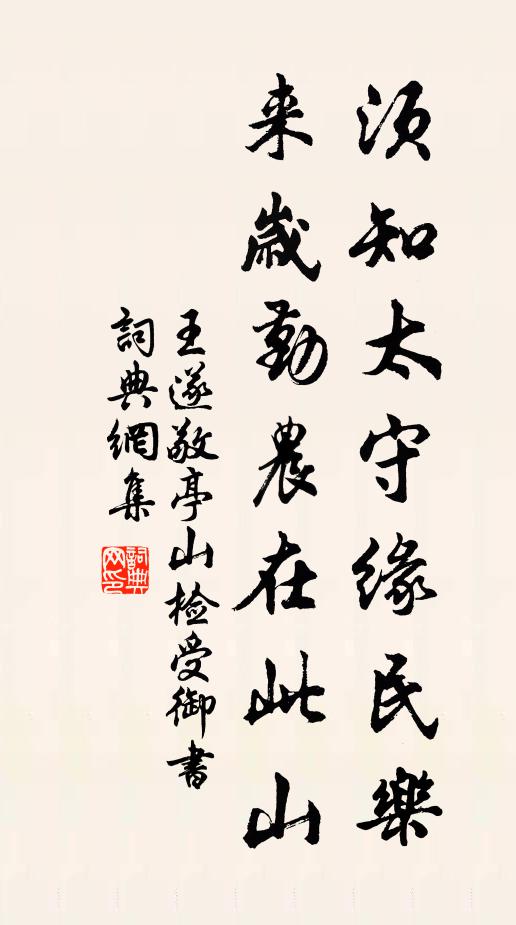 須知太守緣民樂
来歲勤農在此山
王遂敬亭山检受御書
詞典網集
詞典
网印